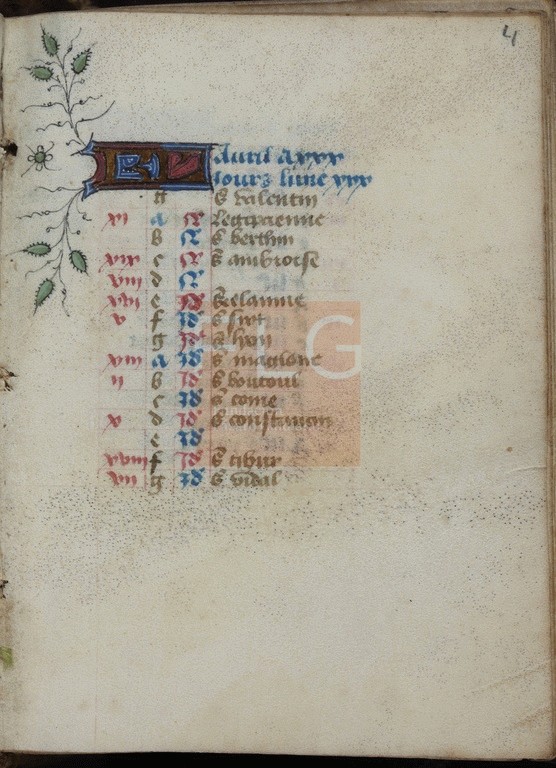 4
KL Auril a xxx
Jours lune xxx
g S valentin
xi a N Legipcienne
b N S berthin
xix c N S ambroise
viii d N
xvi e N
v f Id S sixt
g Id S lyon
xiii a Id S
ii b Id S
c Id S come
x d Id S constantin
e Id
xviii f Id S tibur
vii g Id S vidal